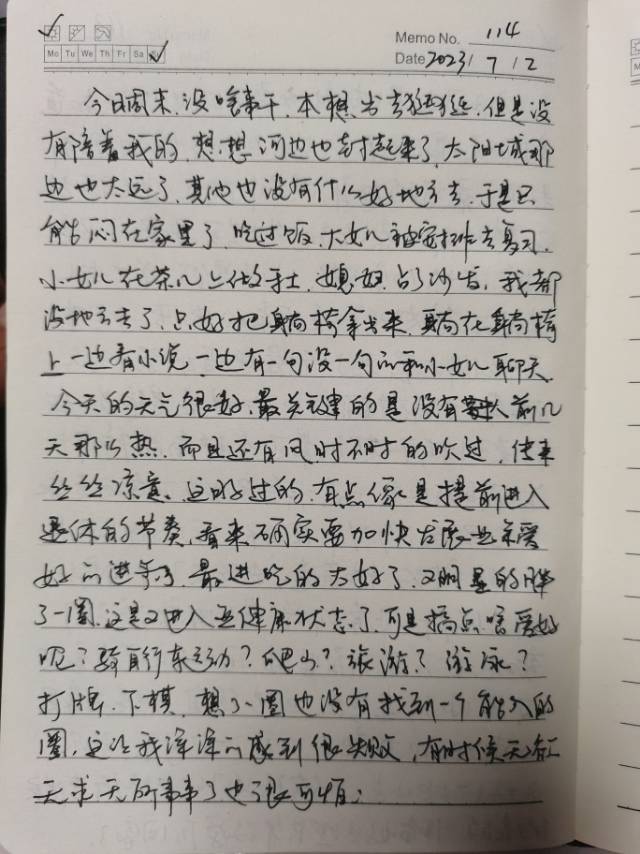 Memo No. 114
Mo Tu We Th Fr Sa Su
Date 2023/7/2
今日周末,没啥事干,本想出去逛逛,但是没
有陪着我的,想想河边也封起来了,太阳城那
边也太远了,其他也没有什么好地方去,于是只
能闷在家里了,吃过饭,大女儿被安排去复习,
小女儿在茶几上做手工,媳妇占了沙发,我都
没地方去了,只好把躺椅拿出来,躺在躺椅
上一边看小说,一边有一句没一句的和小女儿聊天
今天的天气很好,最关键的是没有前几
天那么热,而且还有风时不时的吹过,传来
丝丝凉意。这日子过的,有点像是提前进入
退休的节奏,看来确实要加快发展业余爱
好的进等了,最进吃的太好了,又明显的胖
了一圈,这是又进入亚健康状态了,可是搞点啥爱好
呢?骑自行车运动?爬山?旅游?游泳?
打牌、下棋,想了一圈也没有找到一个能入的
圈,这让我深深的感到很失败,有时候无欲
无求无所事事了也很可怕;